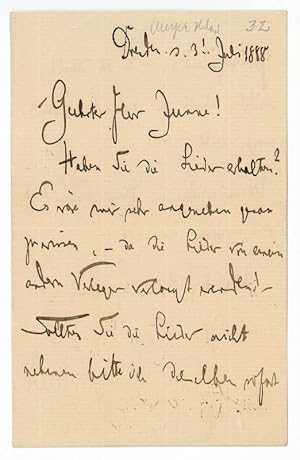 Meyer-Helmund 32
Dresden d. 3t Juli 1888
Geehrter Herr Junne!
Haben Sie die Lieder erhalten?
Es wäre mir sehr angenehm genau
zu wissen, – da die Lieder von einem
andern Verleger verlangt werden! –
Sollten Sie die Lieder nicht
nehmen bitte ich dieselben sofort